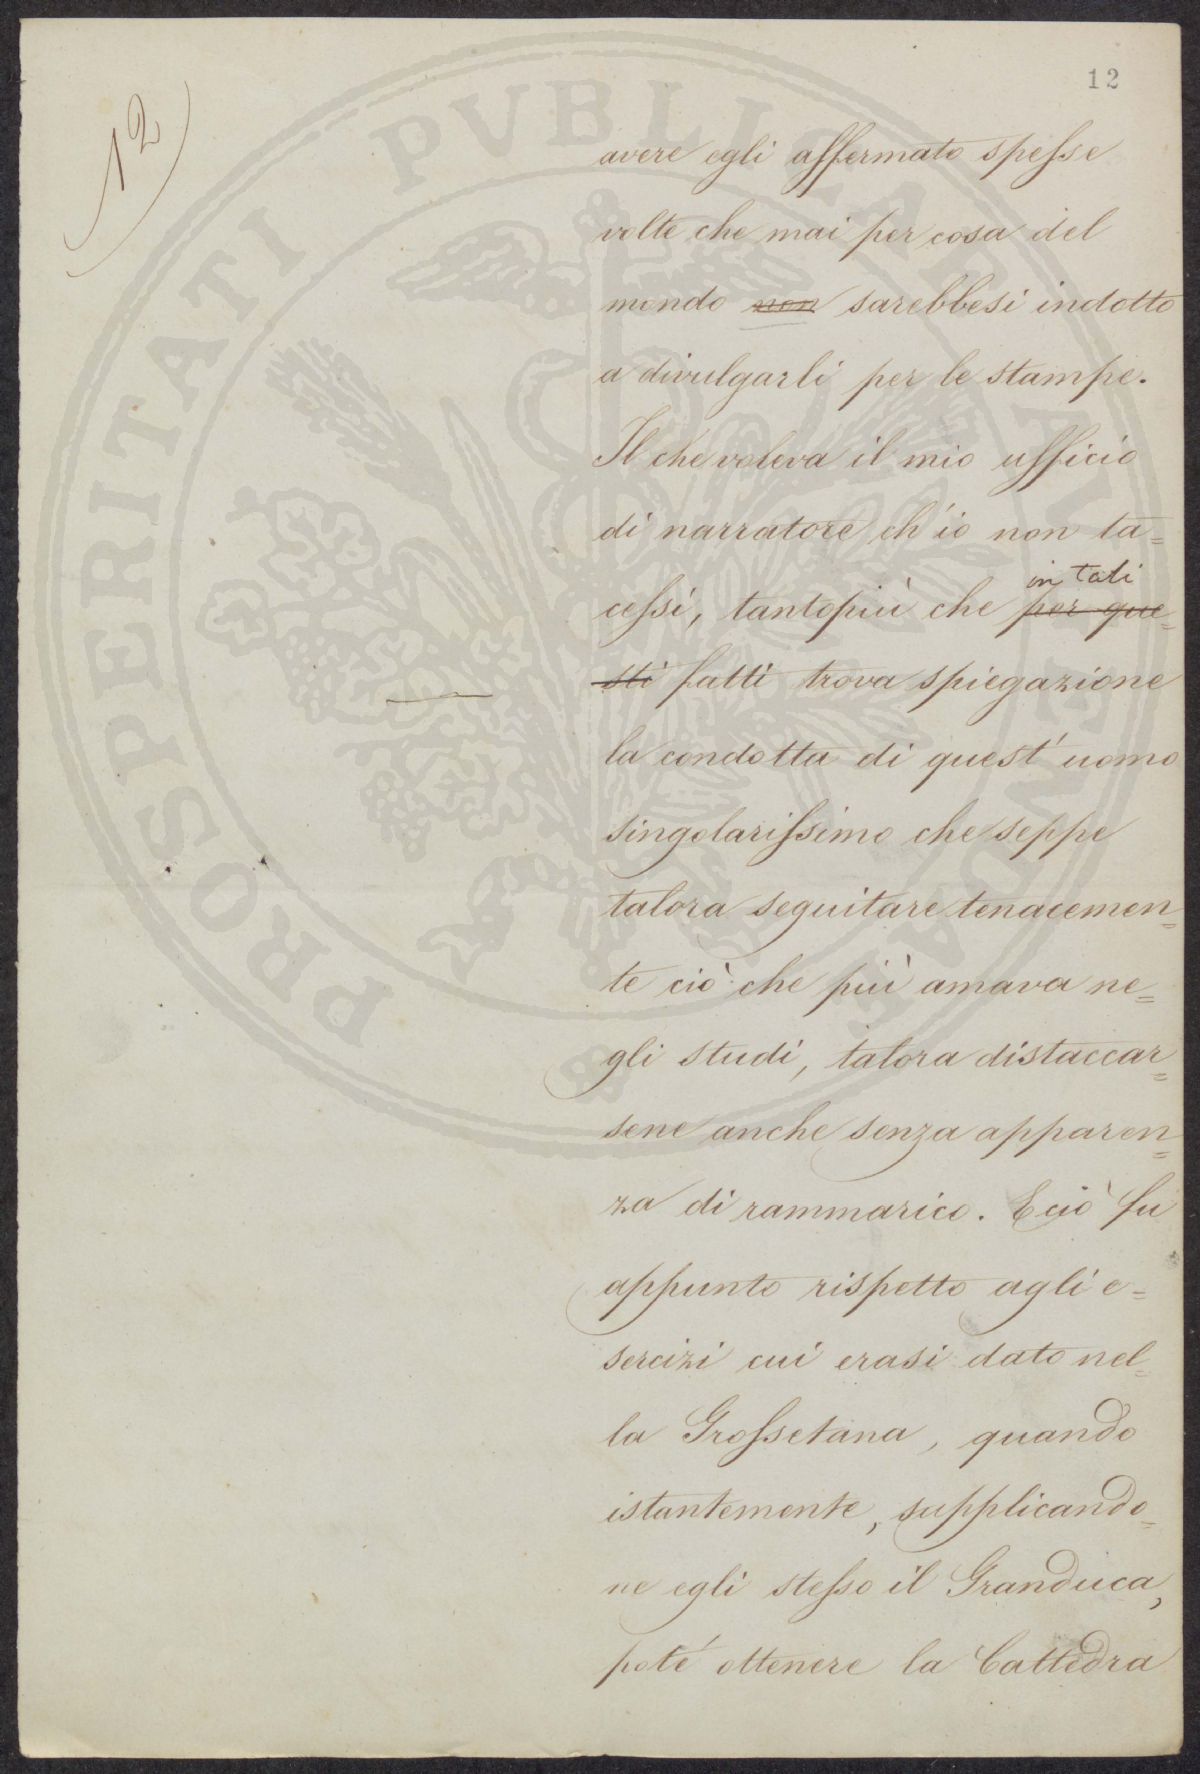 12
12
avere egli affermato spesse
volte che mai per cosa del
mondo non sarebbesi indotto
a divulgarli per le stampe.
Il che voleva il mio ufficio
di narratore ch'io non ta=
in tali
cessi, tantopiù che per que=
sti fatti trova spiegazione
la condotta di quest'uomo
singolarissimo che seppe
talora seguitare tenacemen=
te ciò che più amava ne=
gli studi, talora distaccar=
sene anche senza apparen=
za di rammarico. E ciò fu
appunto rispetto agli e=
sercizi cui erasi dato nel=
la Grossetana, quando
istantemente, supplicando=
ne egli stesso il Granduca,
poté ottenere la Cattedra
PROSPERITATI PVBLICAE AVGENDAE